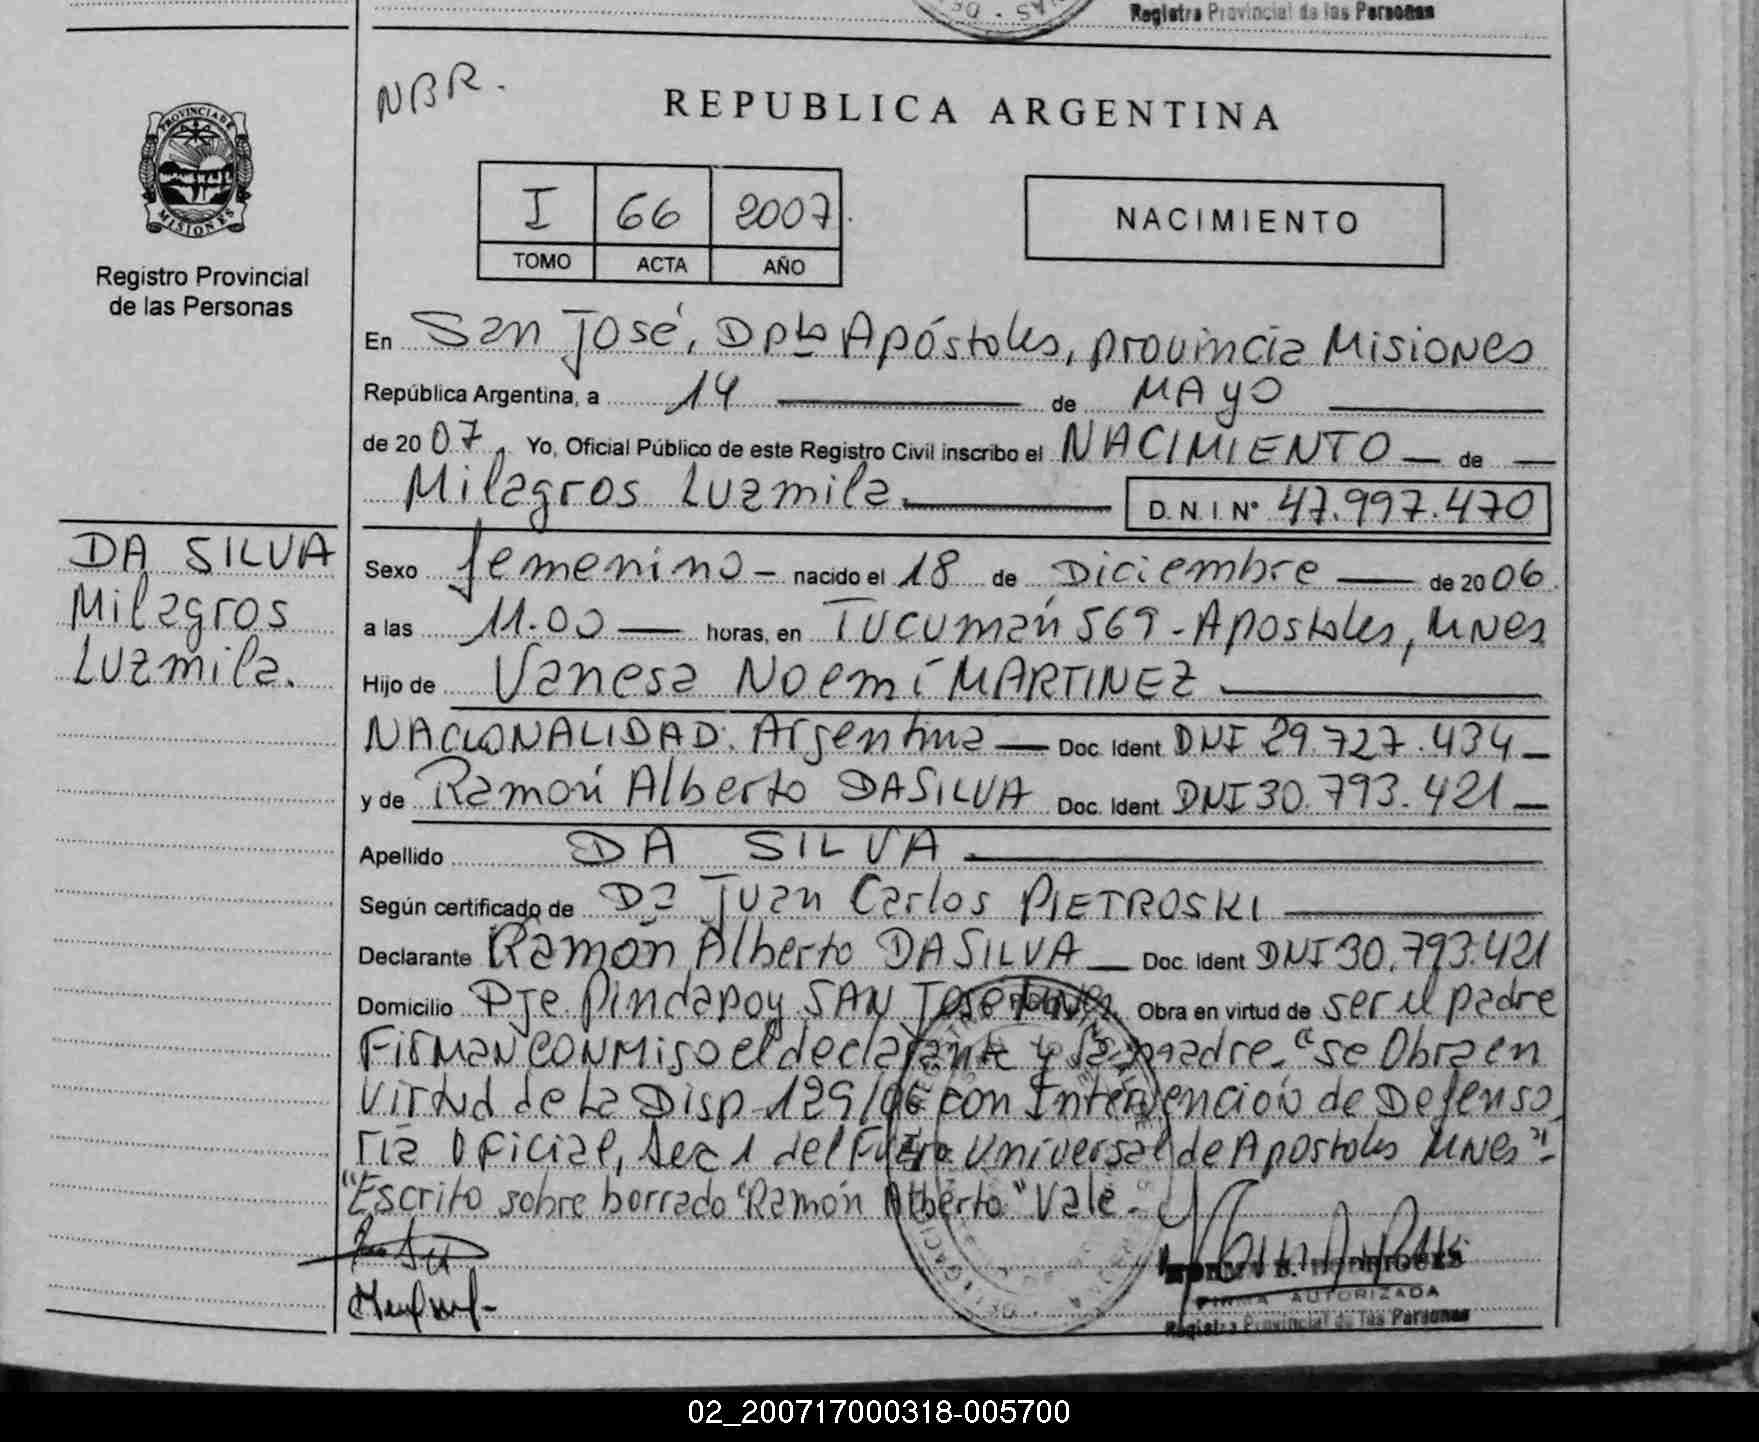 Registro Provincial de las Personas
NBR.
REPUBLICA ARGENTINA
PROVINCIA DE
MISIONES
Registro Provincial
de las Personas
I 66 2007
TOMO ACTA AÑO
NACIMIENTO
En San José, Dpto Apóstoles, provincia Misiones
República Argentina, a 14 de MAYO
de 2007. Yo, Oficial Público de este Registro Civil inscribo el NACIMIENTO de
Milagros Luzmila D.N.I. N° 47.997.470
DA SILVA
Milagros
Luzmila.
Sexo femenino - nacido el 18 de Diciembre de 2006
a las 11.00 horas, en Tucumán 569 - Apostoles, Mnes
Hijo de Vanesa Noemí MARTINEZ
NACIONALIDAD: Argentina Doc. Ident. DNI 29.727.434
y de Ramón Alberto DA SILVA Doc. Ident. DNI 30.793.421
Apellido DA SILVA
Según certificado de Da Juan Carlos PIETROSKI
Declarante Ramón Alberto DA SILVA Doc. Ident DNI 30.793.421
Domicilio Pje. Pindapoy SAN Jose Mnes Obra en virtud de ser el padre
Firman conmigo el declarante y la madre. "se Obra en
Virtud de la Disp 129/06 con Intervención de Defenso
ria Oficial, Sec 1 del Fuero Universal de Apostoles Mnes".
"Escrito sobre borrado "Ramón Alberto" Vale.
FIRMA AUTORIZADA
Registro Provincial de las Personas
02_200717000318-005700